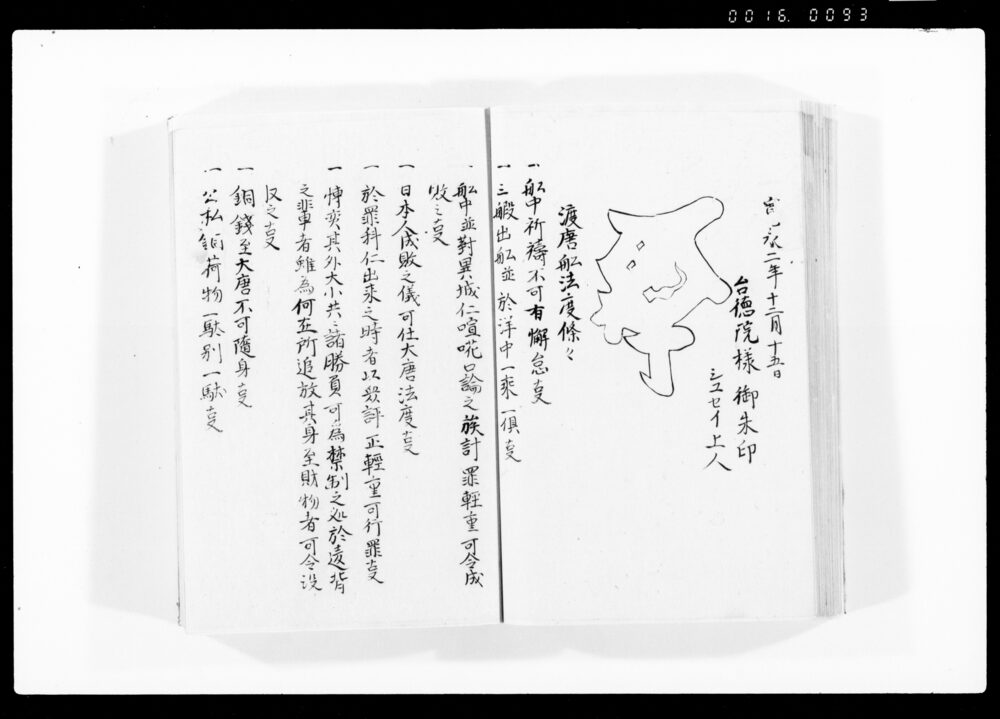 0016. 0093
寛永二年十二月十五日
台徳院様御朱印
シユセイ上人
渡唐舩法度條々
一舩中祈祷不可有懈怠事
一三艘出舩並於洋中一乘一倶事
一舩中並對異域仁喧嘩口論之族計罪輕重可令成
敗之事
一日本人成敗之儀可任大唐法度事
一於罪科仁出来之時者以衆評正輕重可行罪事
一博奕其外大小共諸勝負可為禁制之処於違背
之輩者雖為何在所追放其身至財物者可令没
収之事
一銅錢至大唐不可隨身事
一公私銅荷物一駄別一駄事